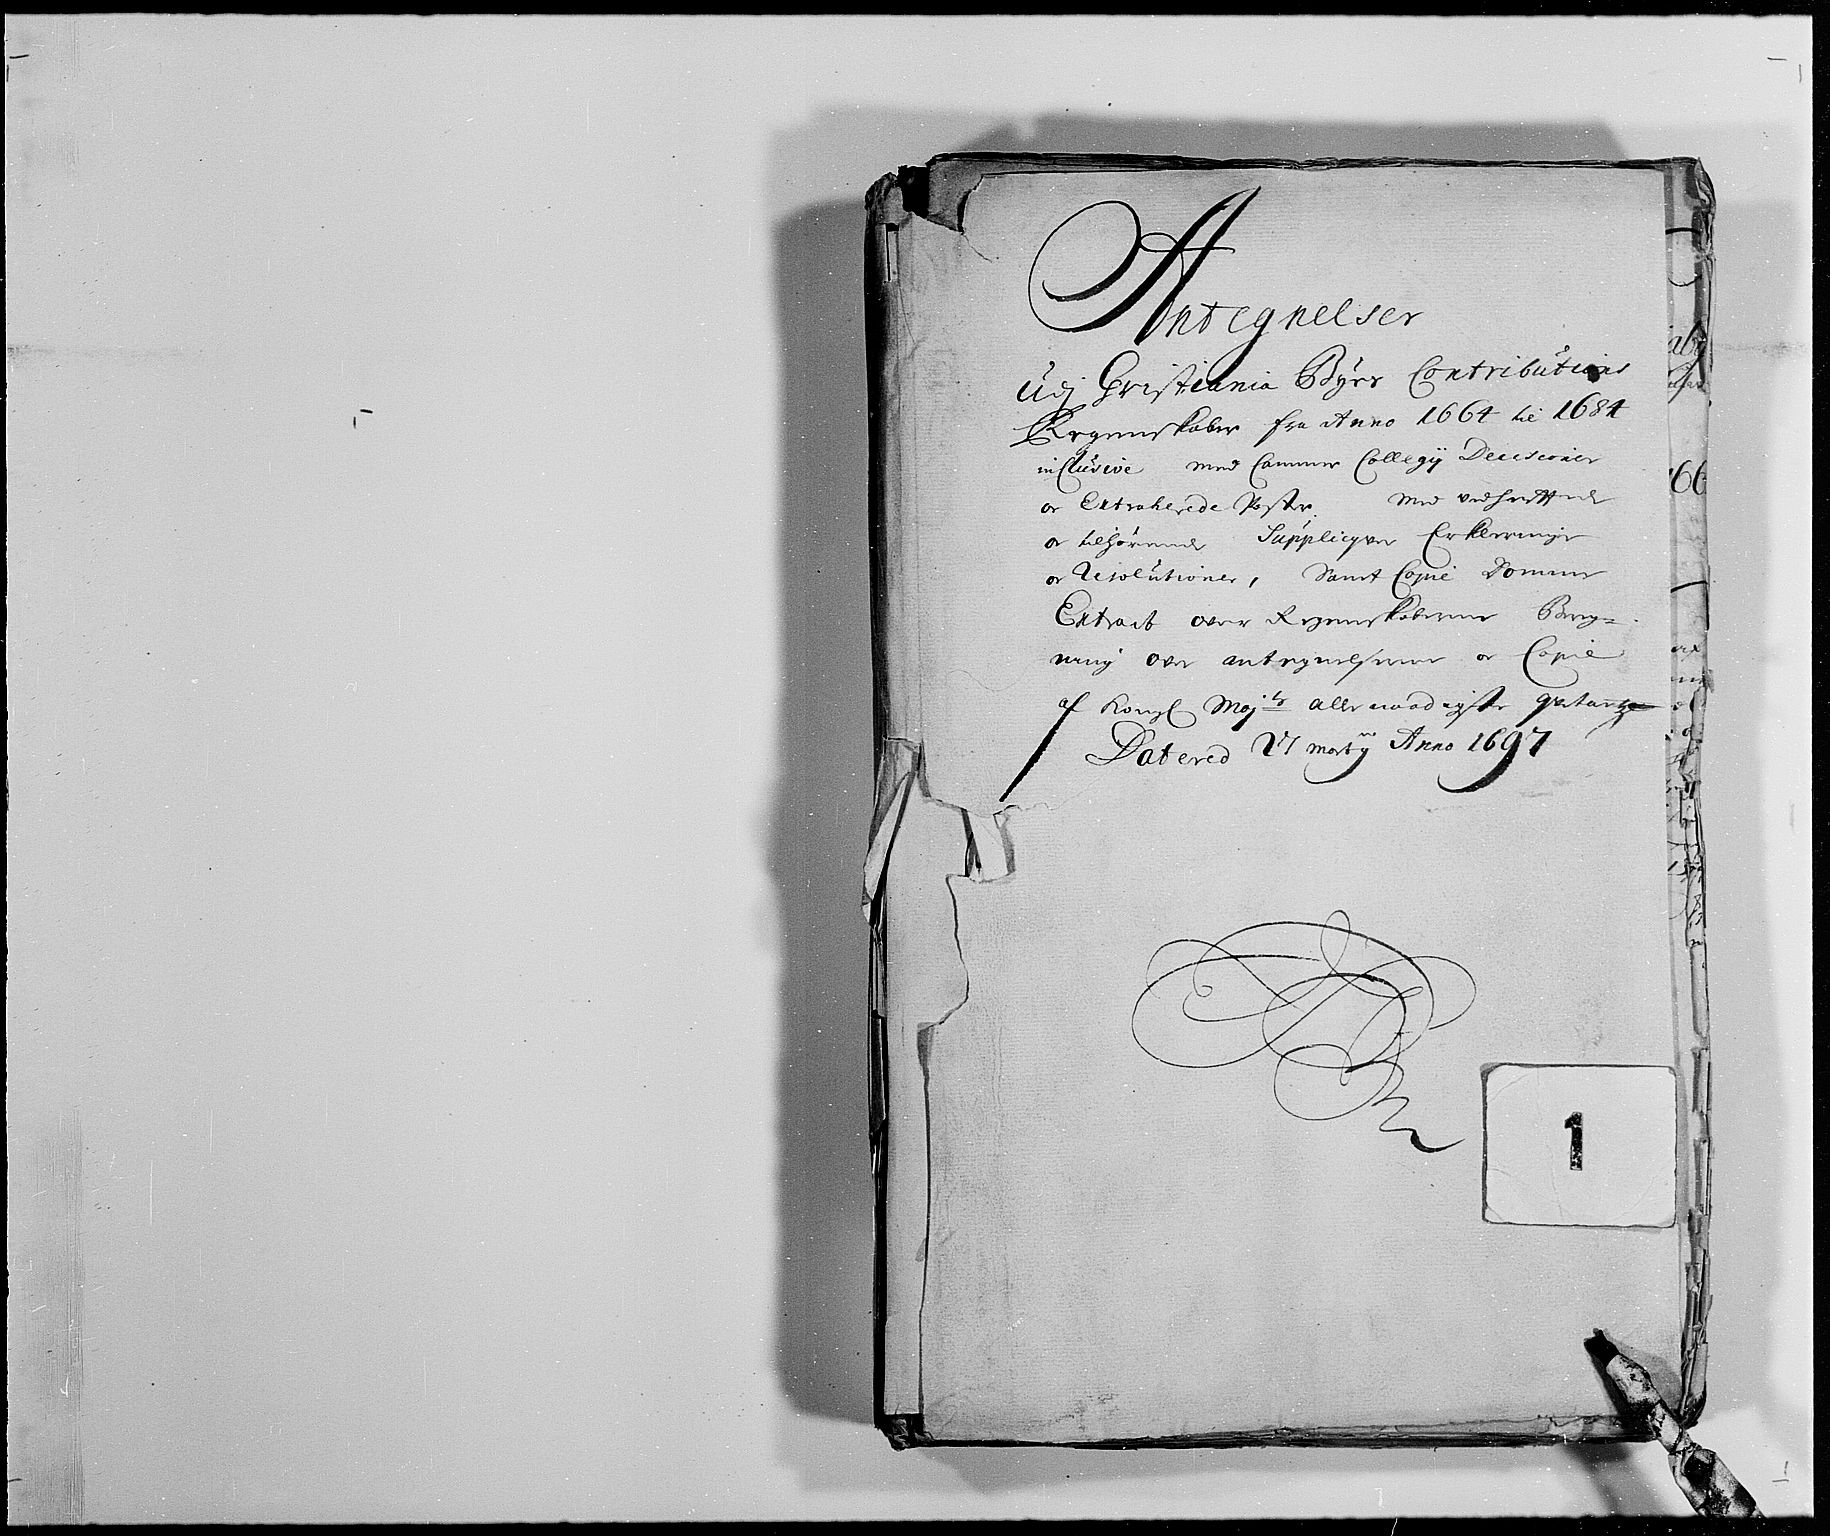 Antegnelser
Udj Christiania Byes Contributions
Regenskaber fra Anno 1664 til 1684
inclusive med Cammer Collegij Decisioner
oc Extraherede Poster. Med vedheftede
oc tilhørende Suppliqver Erklerringer
oc Resolutioner, Samt Copie Domme
Extract over Regenskaberne Bereg=
ning over antegnelserne oc Copie
af Kongl Maj:ts allernaadigste
Datered 27 martij Anno 1697
1